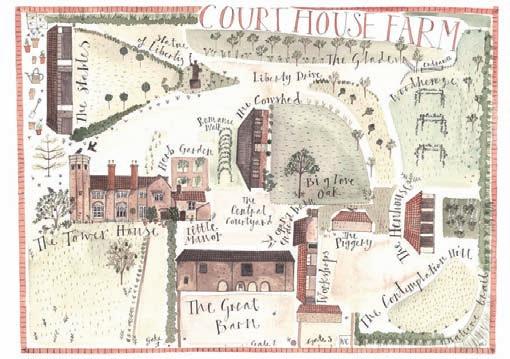 COURT HOUSE FARM
The Stables
Statue of Liberty
The Glades
Liberty Drive
entrance
The Cowshed
Romance Walk
Herb Garden
Big Love Oak
The Central Courtyard
The Tower House
Little Manor
open ended barn
The Piggery
The Henhouse
Workshops
The Great Barn
The Contemplation Hill
Gate 1
Gate 3
WC